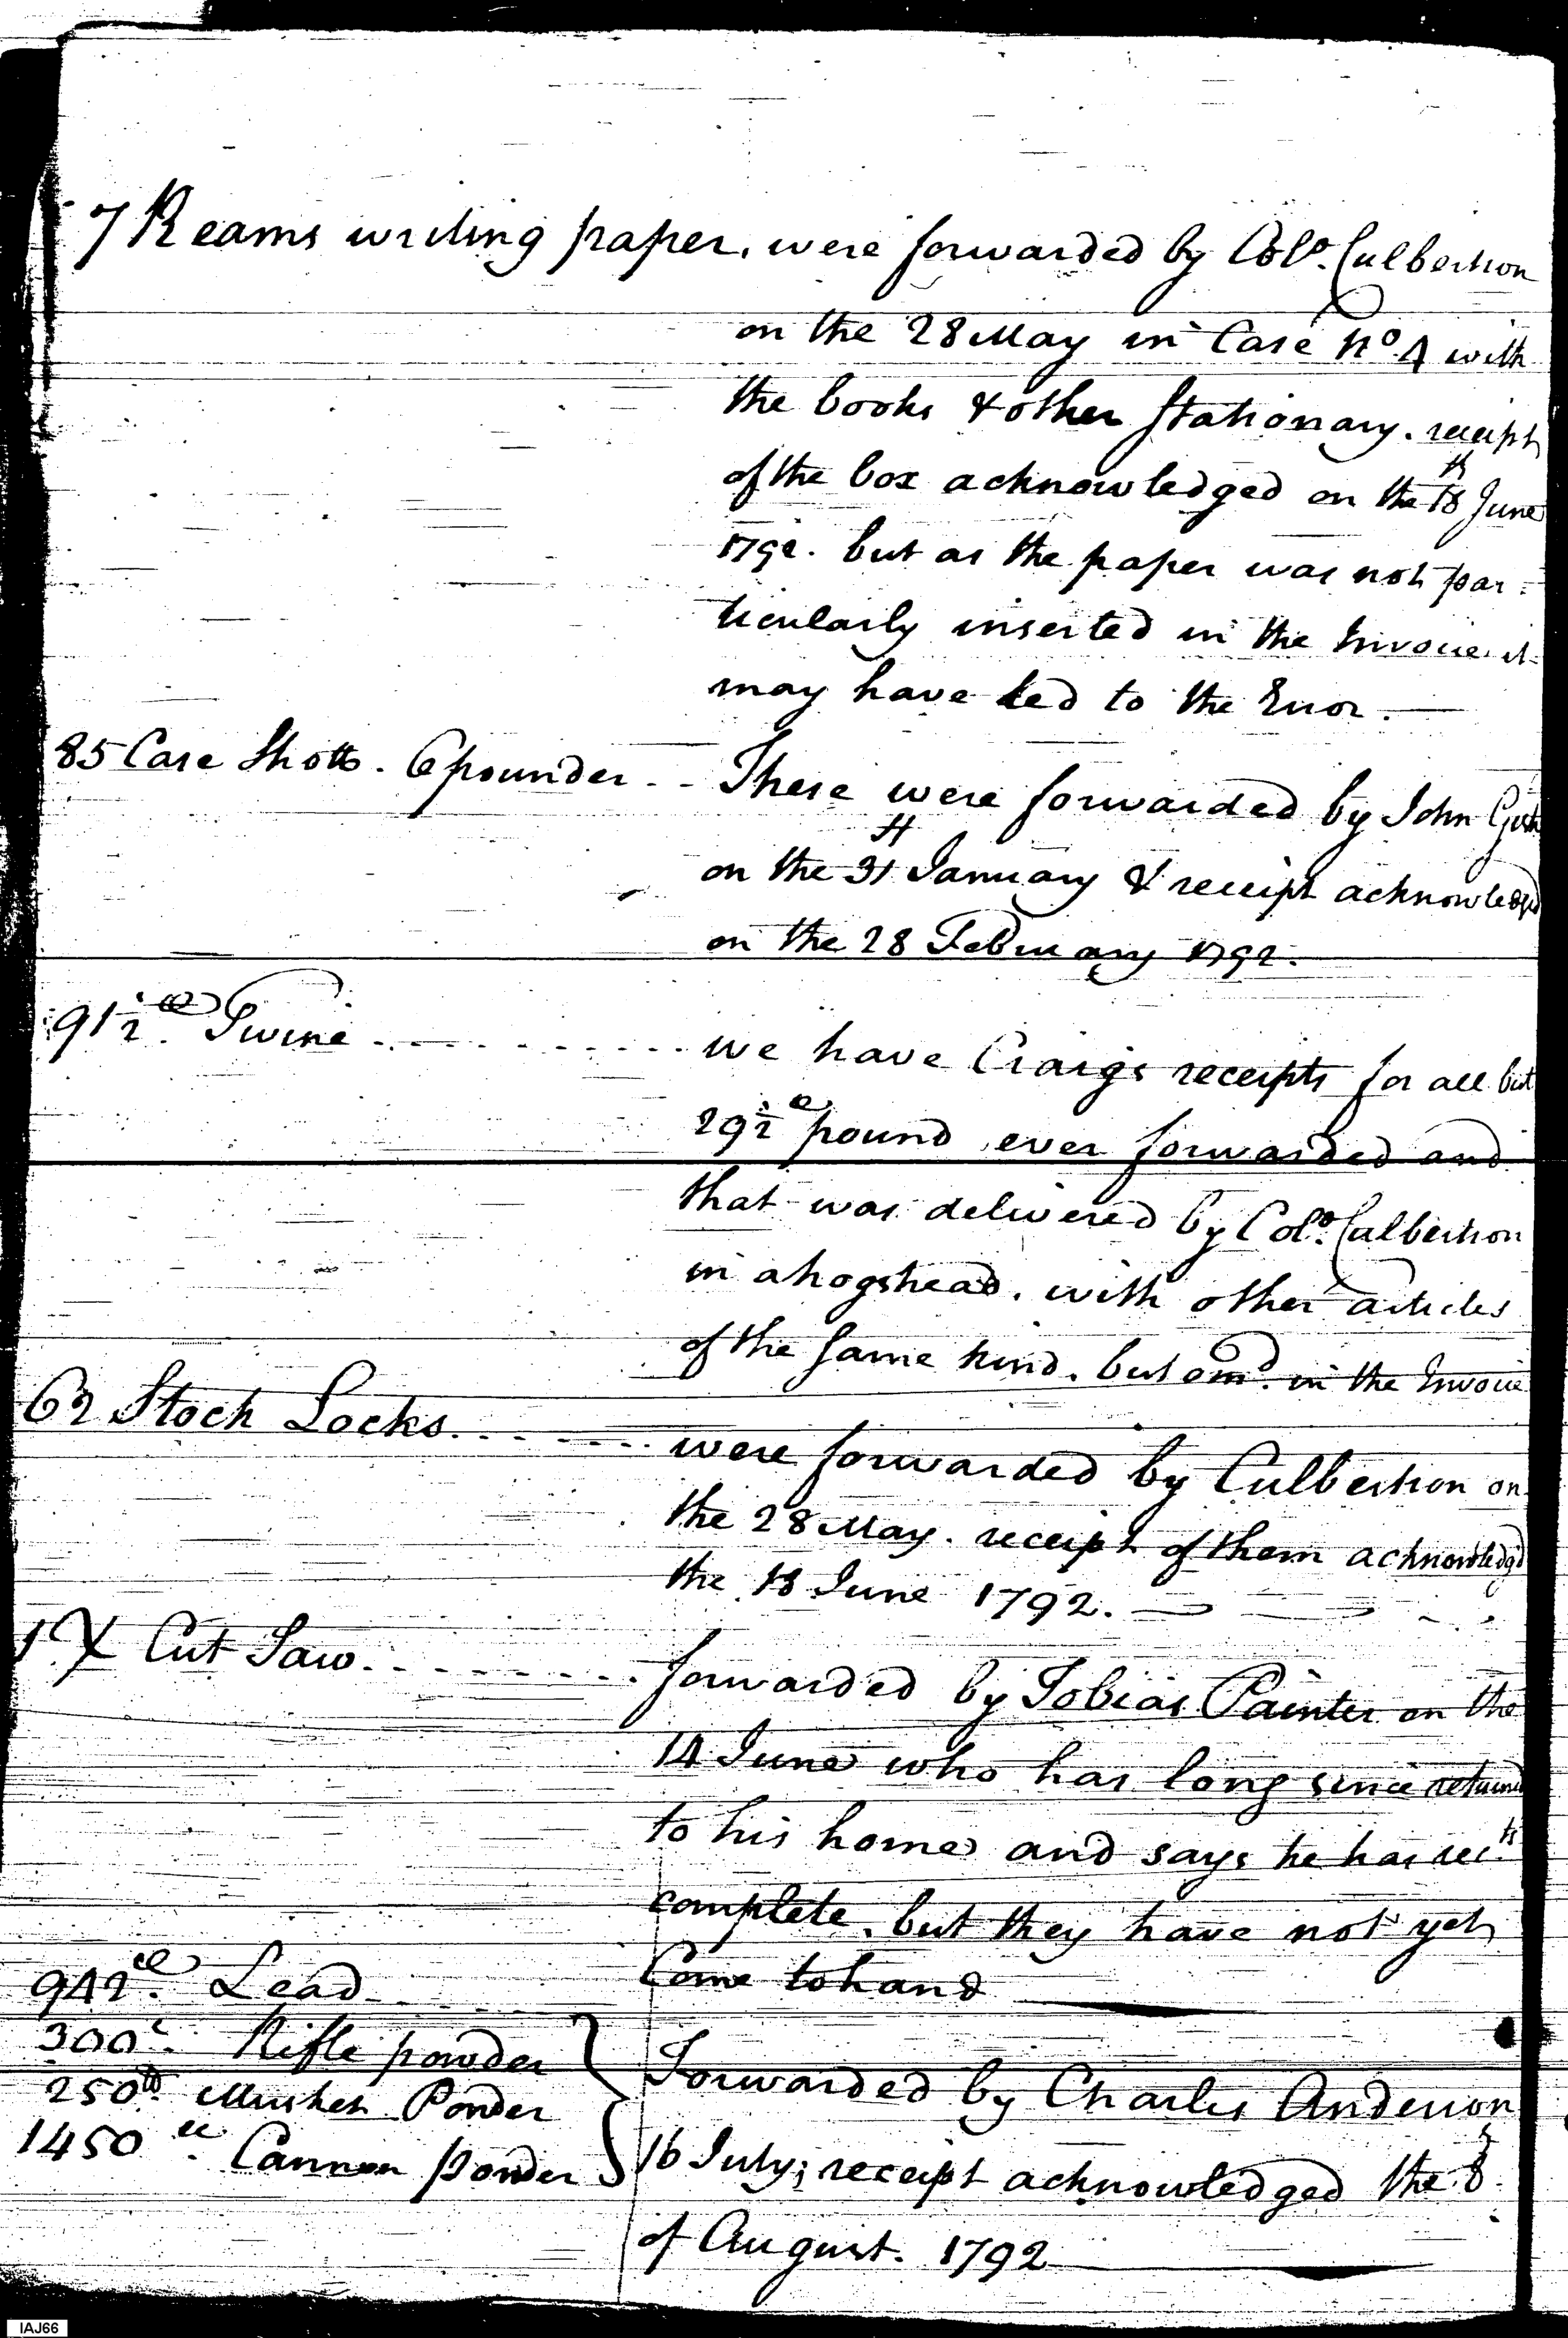 7 Reams writing paper. were forwarded by Colo. Culbertson
on the 28 May in Case No. 4 with
the books & other Stationary. receipt
of the box acknowledged on the 18th June
1792. but as the paper was not par=
ticularly inserted in the Invoice it
may have led to the Error.
85 Case Shotts. 6 pounder - - These were forwarded by John
on the 31st January & receipt acknowledged
on the 28 February 1792.
91½ lb Twine - - - - - - we have Craigs receipts for all but
29½ lb pound ever forwarded and
that was delivered by Colo. Culbertson
in a hogshead. with other articles
of the same kind. but omd. in the Invoice
62 Stock Locks - - - - were forwarded by Culbertson on
the 28 May. receipt of them acknowledgd
the 18 June 1792.
1 X Cut Saw - - - - - forwarded by Tobias Painter on the
14 June who has long since returned
to his home and says he has rects
complete. but they have not yet
Come to hand
942 lb. Lead
300 lb. Rifle powder
250 lb. Musket Powder
1450 lb. Cannon powder
Forwarded by Charles Anderson
16 July; receipt acknowledged the 8
of August. 1792
IAJ66